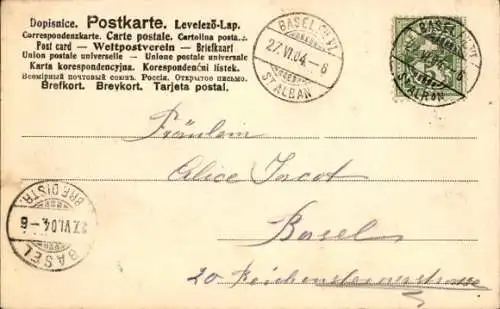 Dopisnice. Postkarte. Levelező-Lap.
Correspondenzkarte. Carte postale. Cartolina posta.
Post card — Weltpostverein — Briefkaart
Union postale universelle — Unione postale universale
Karta korespondencyjna. Korespondenční lístek.
Всемірный почтовый союзъ. Россія. Открытое письмо.
Brefkort. Brevkort. Tarjeta postal.
BASEL
27.VI.04.-6
ST. ALBAN
BASEL
ST. ALBAN
Fräulein
Alice Jacot
Basel
20
BASEL
27.VI.04.-6